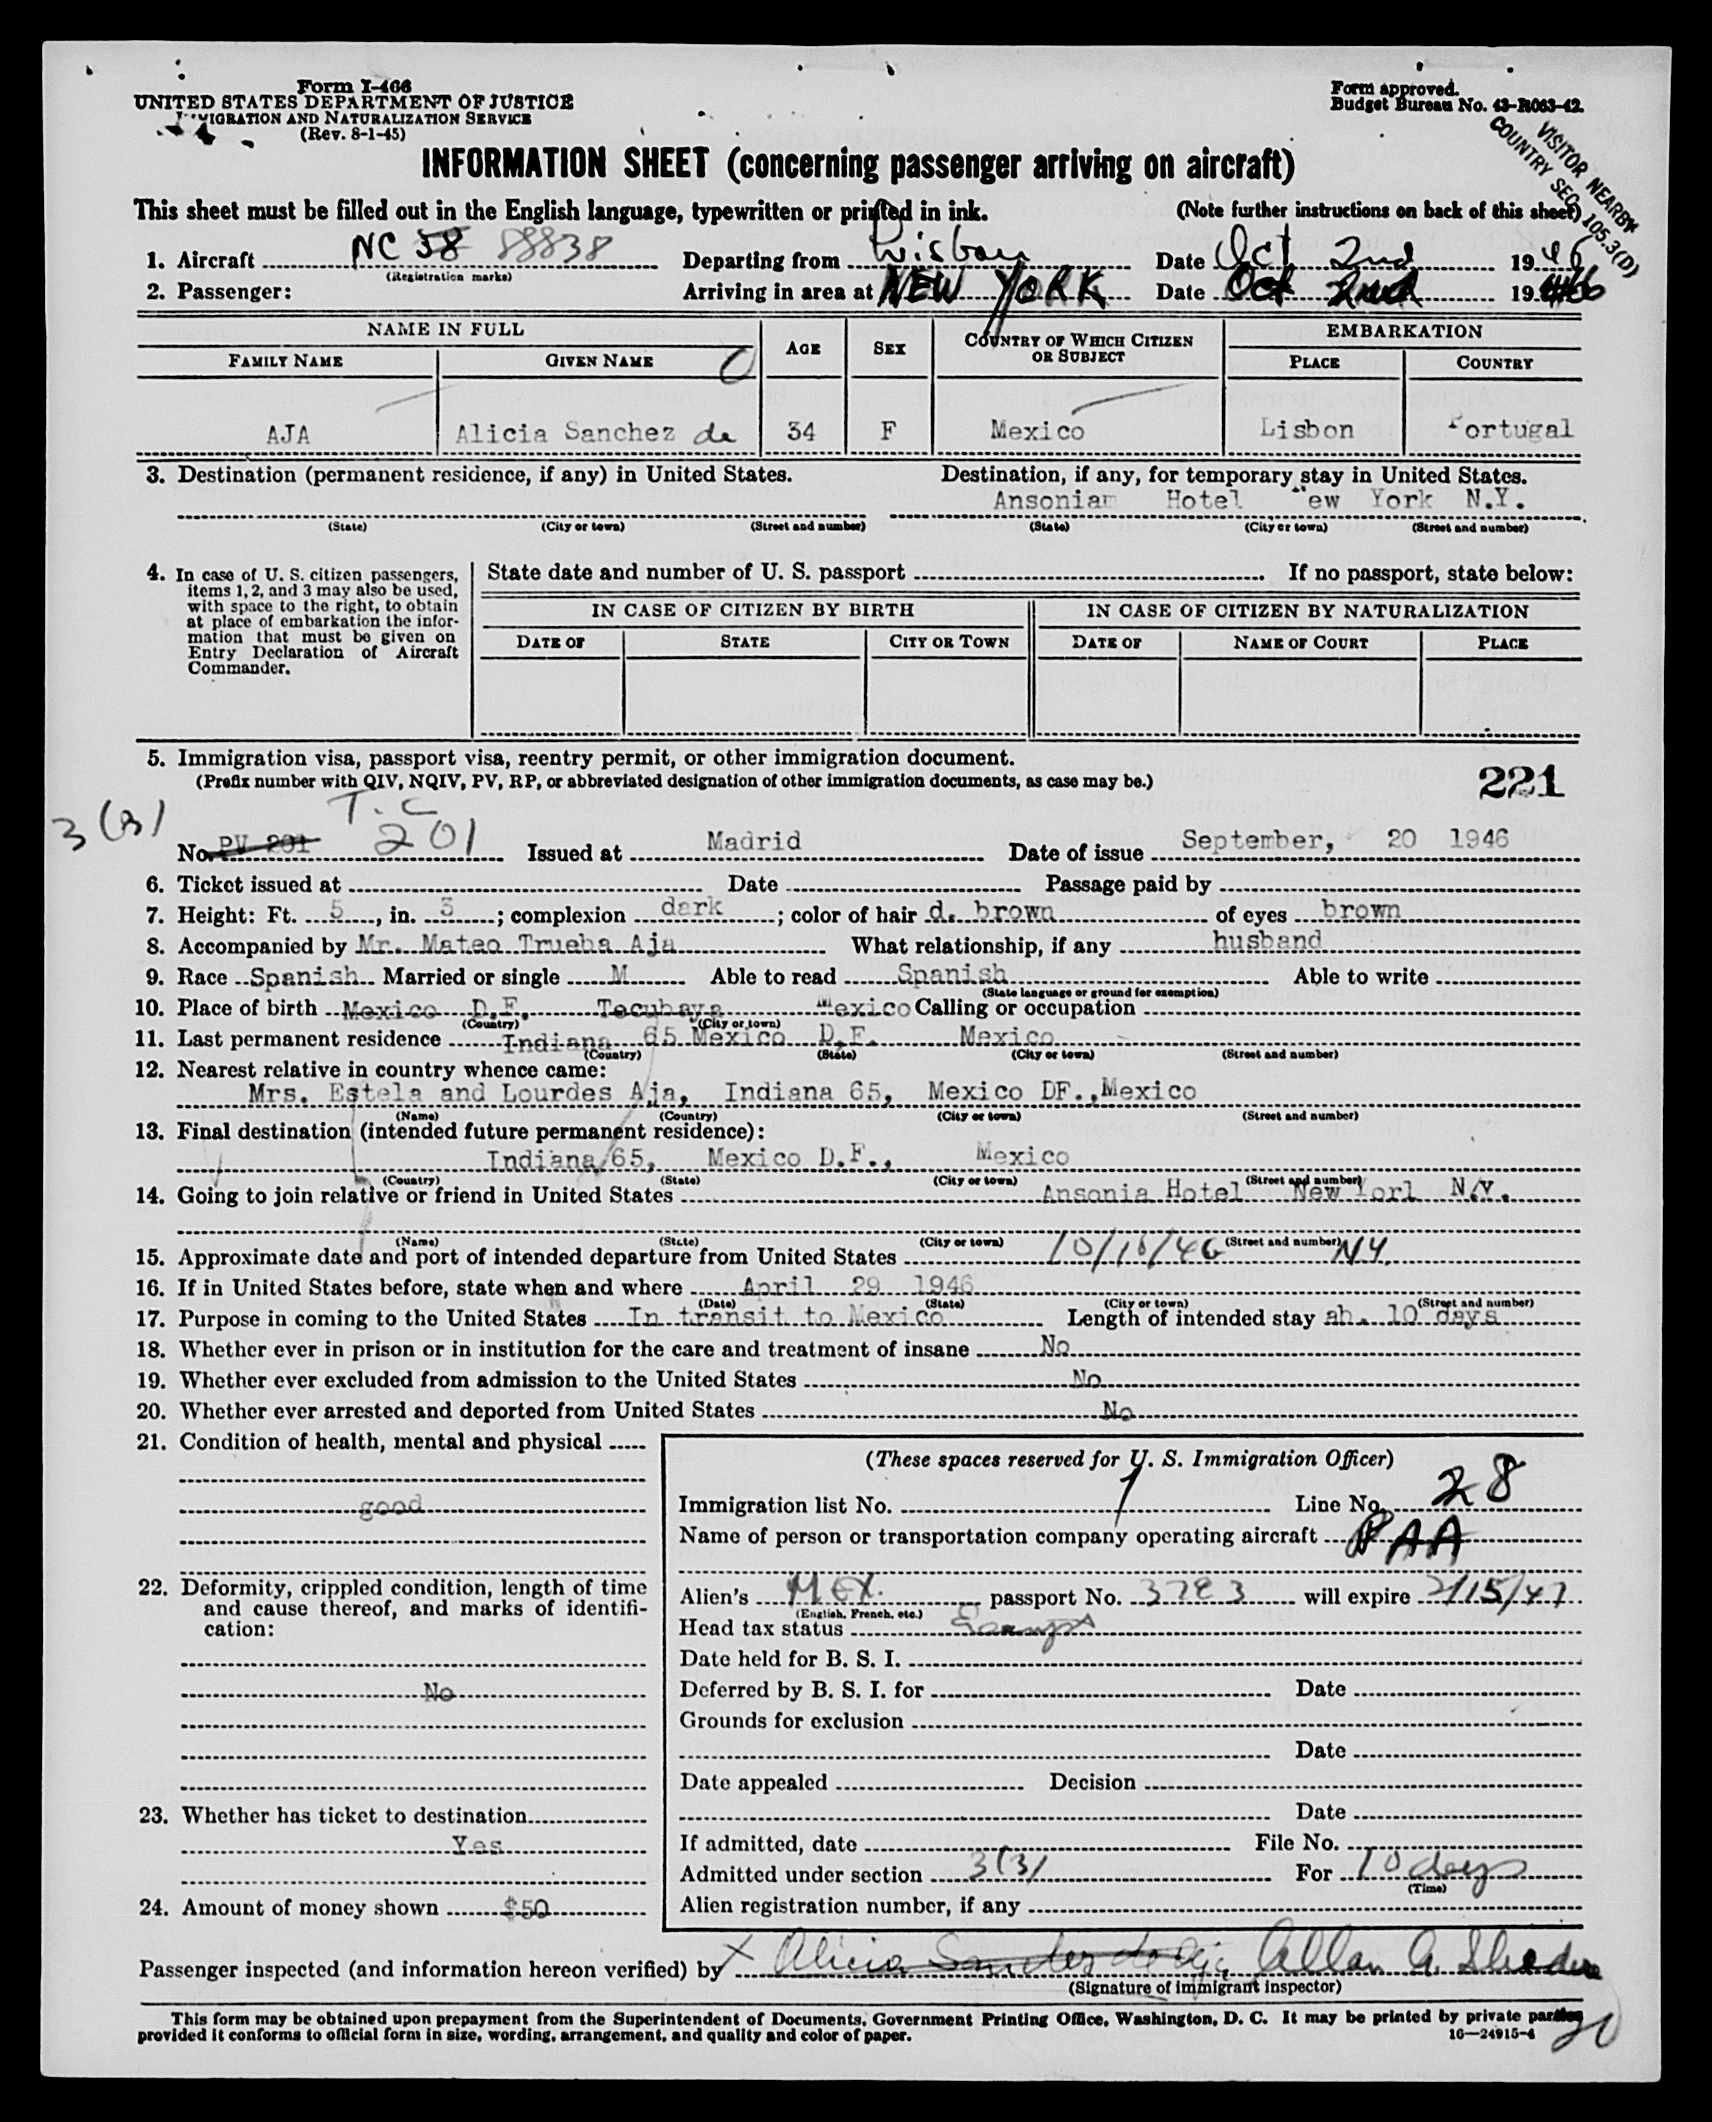 Form I-466
UNITED STATES DEPARTMENT OF JUSTICE
IMMIGRATION AND NATURALIZATION SERVICE
(Rev. 8-1-45)
Form approved.
Budget Bureau No. 43-R063-42.
VISITOR NEARBY
COUNTRY SEC. 105.3(D)
INFORMATION SHEET (concerning passenger arriving on aircraft)
This sheet must be filled out in the English language, typewritten or printed in ink. (Note further instructions on back of this sheet)
1. Aircraft NC 58 88838 Departing from Lisbon Date Oct 2nd 1946
(Registration marks)
2. Passenger: Arriving in area at NEW YORK Date Oct 2nd 1946
NAME IN FULL AGE SEX COUNTRY OF WHICH CITIZEN OR SUBJECT EMBARKATION
FAMILY NAME GIVEN NAME PLACE COUNTRY
AJA Alicia Sanchez de 34 F Mexico Lisbon Portugal
3. Destination (permanent residence, if any) in United States. Destination, if any, for temporary stay in United States.
Ansoniam Hotel New York N.Y.
(State) (City or town) (Street and number) (State) (City or town) (Street and number)
4. In case of U. S. citizen passengers, items 1, 2, and 3 may also be used, with space to the right, to obtain at place of embarkation the information that must be given on Entry Declaration of Aircraft Commander.
State date and number of U. S. passport If no passport, state below:
IN CASE OF CITIZEN BY BIRTH IN CASE OF CITIZEN BY NATURALIZATION
DATE OF STATE CITY OR TOWN DATE OF NAME OF COURT PLACE
5. Immigration visa, passport visa, reentry permit, or other immigration document.
(Prefix number with QIV, NQIV, PV, RP, or abbreviated designation of other immigration documents, as case may be.)
221
3(3) T.C
No. PV 201 201 Issued at Madrid Date of issue September, 20 1946
6. Ticket issued at Date Passage paid by
7. Height: Ft. 5, in. 3; complexion dark; color of hair d. brown of eyes brown
8. Accompanied by Mr. Mateo Trueba Aja What relationship, if any husband
9. Race Spanish Married or single M Able to read Spanish Able to write
(State language or ground for exemption)
10. Place of birth Mexico D.F. Tecubaya Mexico Calling or occupation
(Country) (City or town)
11. Last permanent residence Indiana 65 Mexico D.F. Mexico
(Country) (State) (City or town) (Street and number)
12. Nearest relative in country whence came:
Mrs. Estela and Lourdes Aja, Indiana 65, Mexico DF.,Mexico
(Name) (Country) (City or town) (Street and number)
13. Final destination (intended future permanent residence):
Indiana 65, Mexico D.F., Mexico
(Country) (State) (City or town) (Street and number)
14. Going to join relative or friend in United States Ansonia Hotel New Yorl N.Y.
(Name) (State) (City or town) (Street and number)
15. Approximate date and port of intended departure from United States 10/10/46 NY.
16. If in United States before, state when and where April 29 1946
(Date) (State) (City or town) (Street and number)
17. Purpose in coming to the United States In transit to Mexico Length of intended stay ab. 10 days
18. Whether ever in prison or in institution for the care and treatment of insane No
19. Whether ever excluded from admission to the United States No
20. Whether ever arrested and deported from United States No
21. Condition of health, mental and physical
good
22. Deformity, crippled condition, length of time and cause thereof, and marks of identification:
No
23. Whether has ticket to destination
Yes
24. Amount of money shown $50
(These spaces reserved for U. S. Immigration Officer)
Immigration list No. 1 Line No. 28
Name of person or transportation company operating aircraft PAA
Alien's MEX. passport No. 3783 will expire 2/15/47
(English, French, etc.)
Head tax status Exempt
Date held for B. S. I.
Deferred by B. S. I. for Date
Grounds for exclusion
Date
Date appealed Decision
Date
If admitted, date File No.
Admitted under section 3(3) For 10 days
(Time)
Alien registration number, if any
Passenger inspected (and information hereon verified) by X Alicia Sanchez de Aja Allan A.
(Signature of immigrant inspector)
This form may be obtained upon prepayment from the Superintendent of Documents, Government Printing Office, Washington, D. C. It may be printed by private parties
provided it conforms to official form in size, wording, arrangement, and quality and color of paper. 16—24915-4